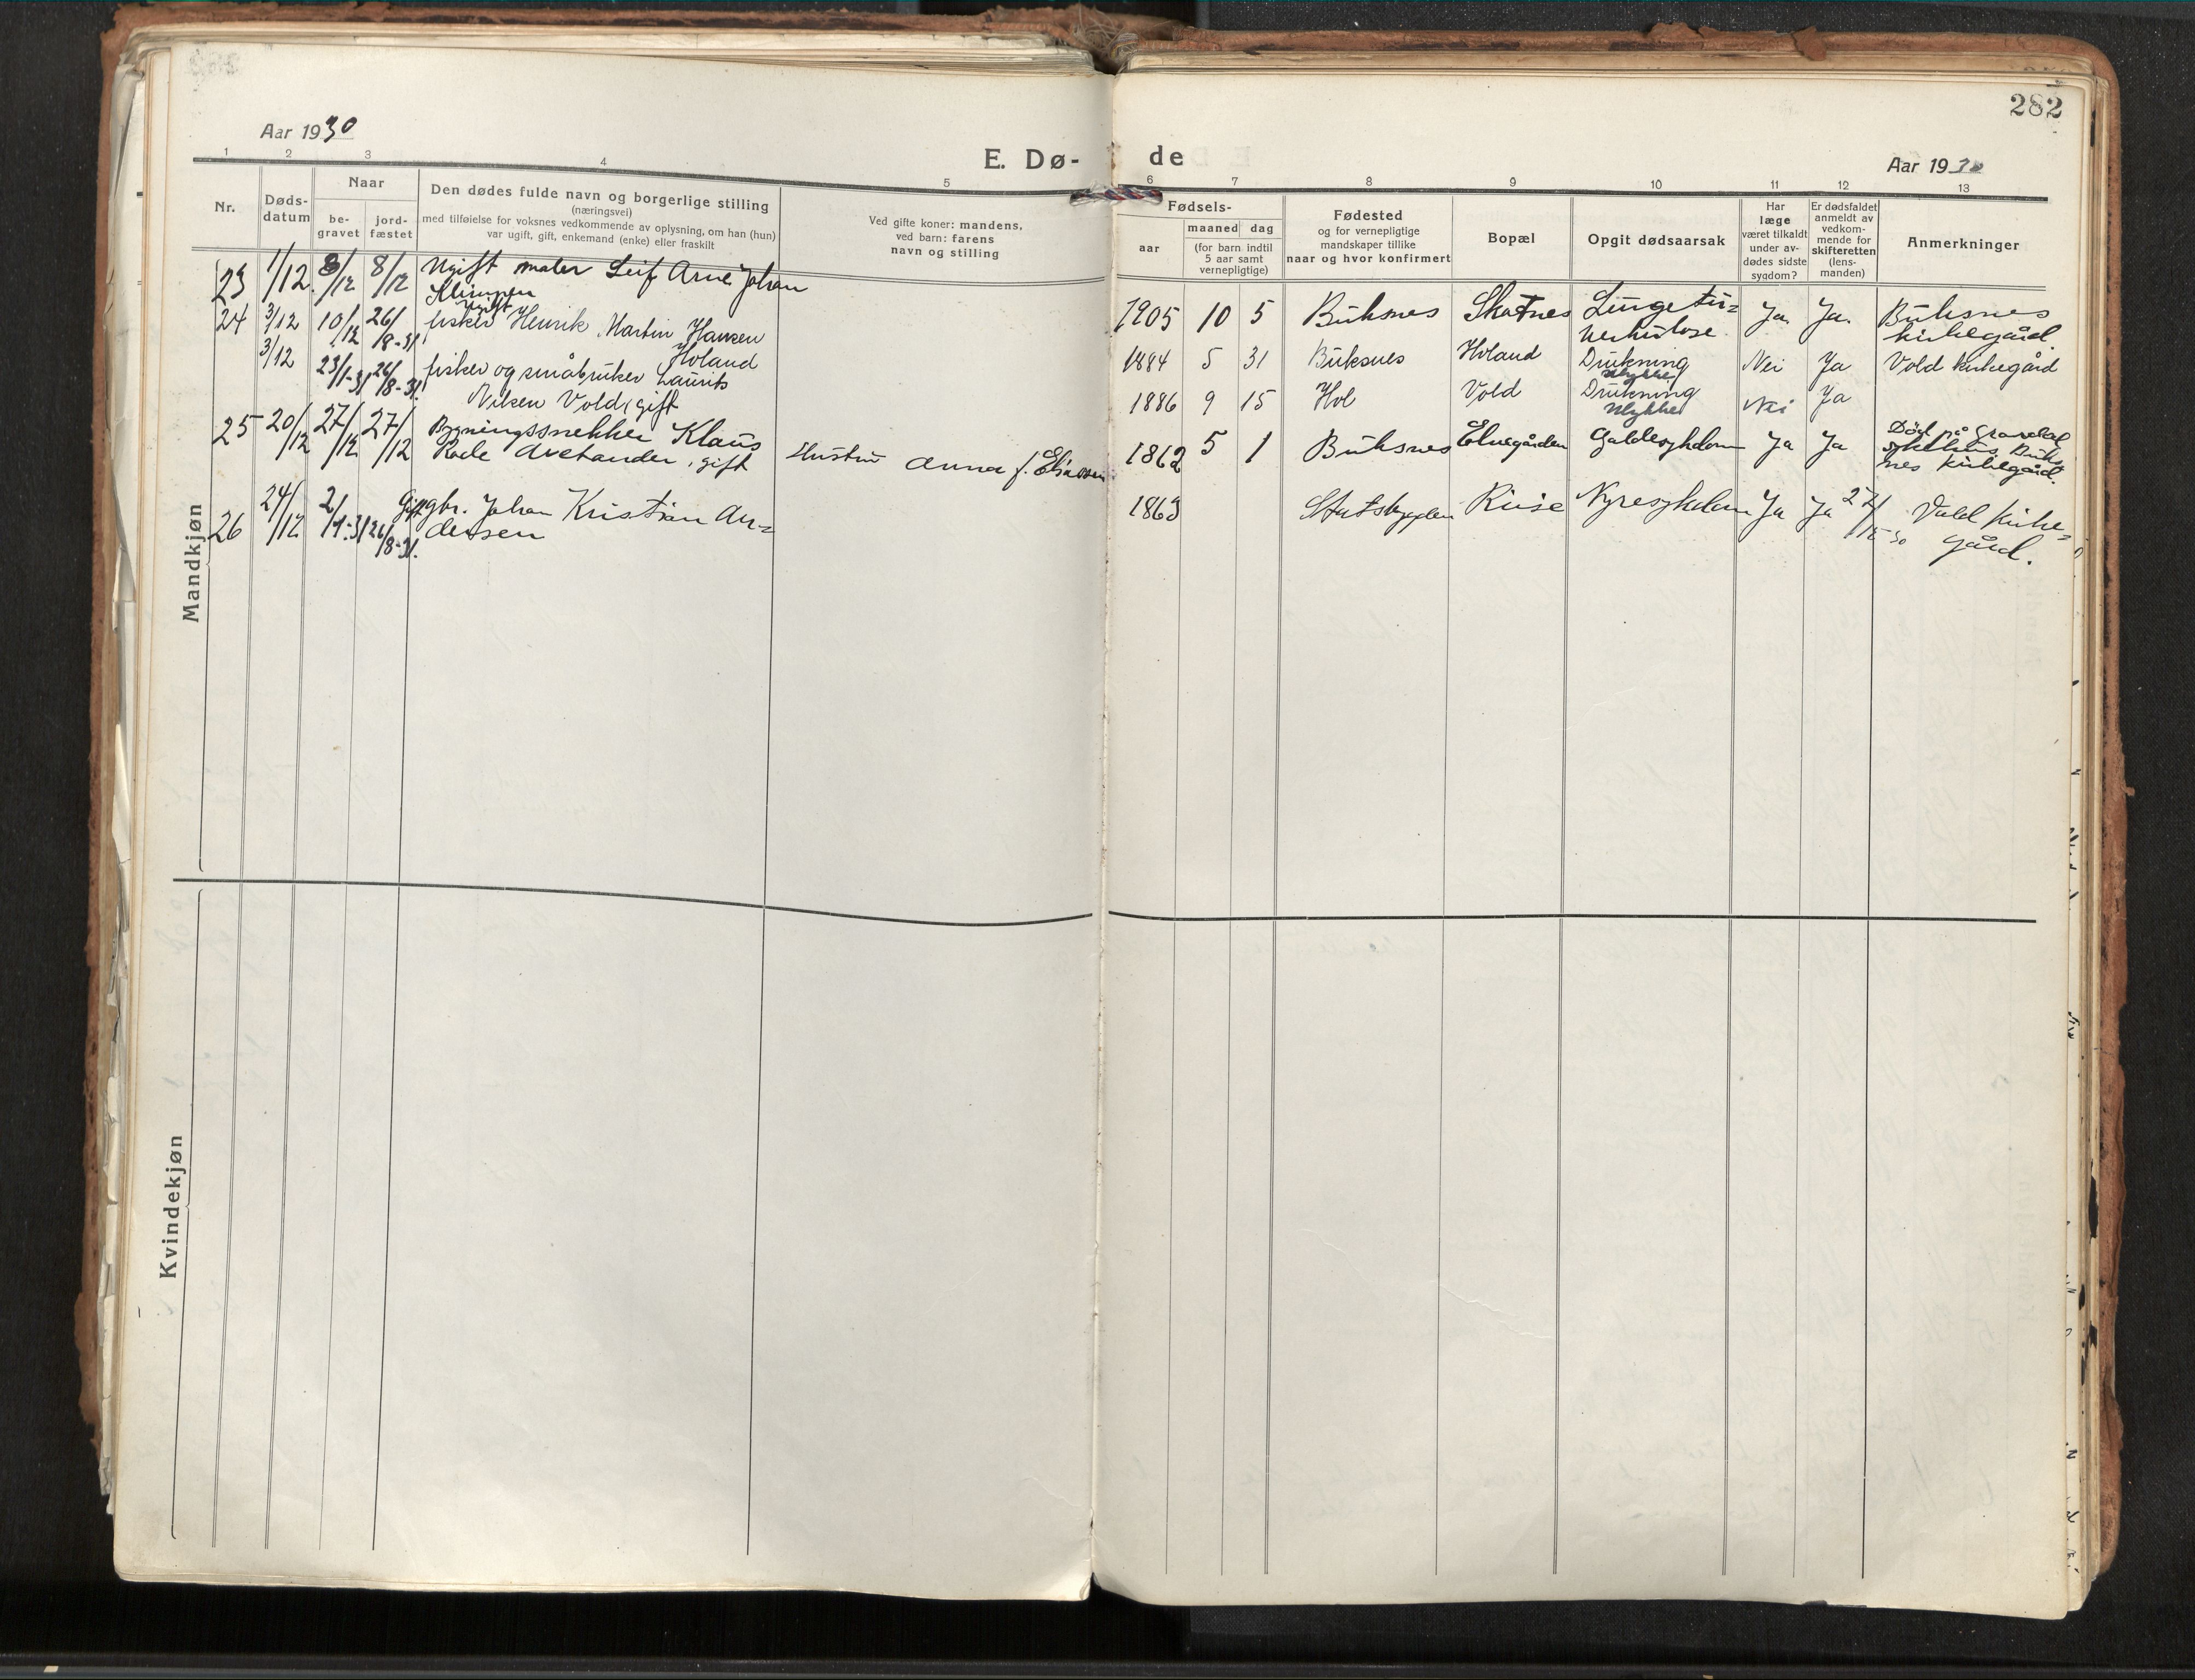 282
Aar 1930
E. Dø-
de
Aar 1930
1 2 3 4 5 6 7 8 9 10 11 12 13
Nr.
Døds-
datum
Naar
be-
gravet
jord-
fæstet
Den dødes fulde navn og borgerlige stilling
(næringsvei)
med tilføielse for voksnes vedkommende av oplysning, om han (hun)
var ugift, gift, enkemand (enke) eller fraskilt
Ved gifte koner: mandens,
ved barn: farens
navn og stilling
Fødsels-
aar
maaned dag
(for barn indtil
5 aar samt
vernepligtige)
Fødested
og for vernepligtige
mandskaper tillike
naar og hvor konfirmert
Bopæl
Opgit dødsaarsak
Har
læge
været tilkaldt
under av-
dødes sidste
sygdom?
Er dødsfaldet
anmeldt av
vedkom-
mende for
skifteretten
(lens-
manden)
Anmerkninger
Mandkjøn
23 1/12 8/12 8/12 Ugift maler Leif Arne Johan
1905 10 5 Buksnes Skatnes Lungetu=
berkulose Ja. Ja. Buksnes
kirkegård.
24 3/12 10/12 26/8-31 ugift
fisker Henrik Martin Hansen
Holand
1884 5 31 Buksnes Holand Drukning
ulykke Nei Ja Vold kirkegård
3/12 23/1-31 26/8-31 fisker og småbruker Laurits
Nilsen Vold, gift
1886 9 15 Hol Vold Drukning
ulykke Nei Ja
25 20/12 27/12 27/12 Bygningssnekker Klaus
gift Hustru Anna f. Eliassen
1862 5 1 Buksnes Elvegården Galdesykdom Ja Ja Död på Gravdal
sykehus, Buks
nes kirkegård.
26 24/12 2/1-31 26/8-31. Gift gbr. Johan Kristian An=
dersen
1863 Statsbygden Riise Nyresykdom Ja Ja 27/12-30 Vold kirke=
gård.
Kvindekjøn